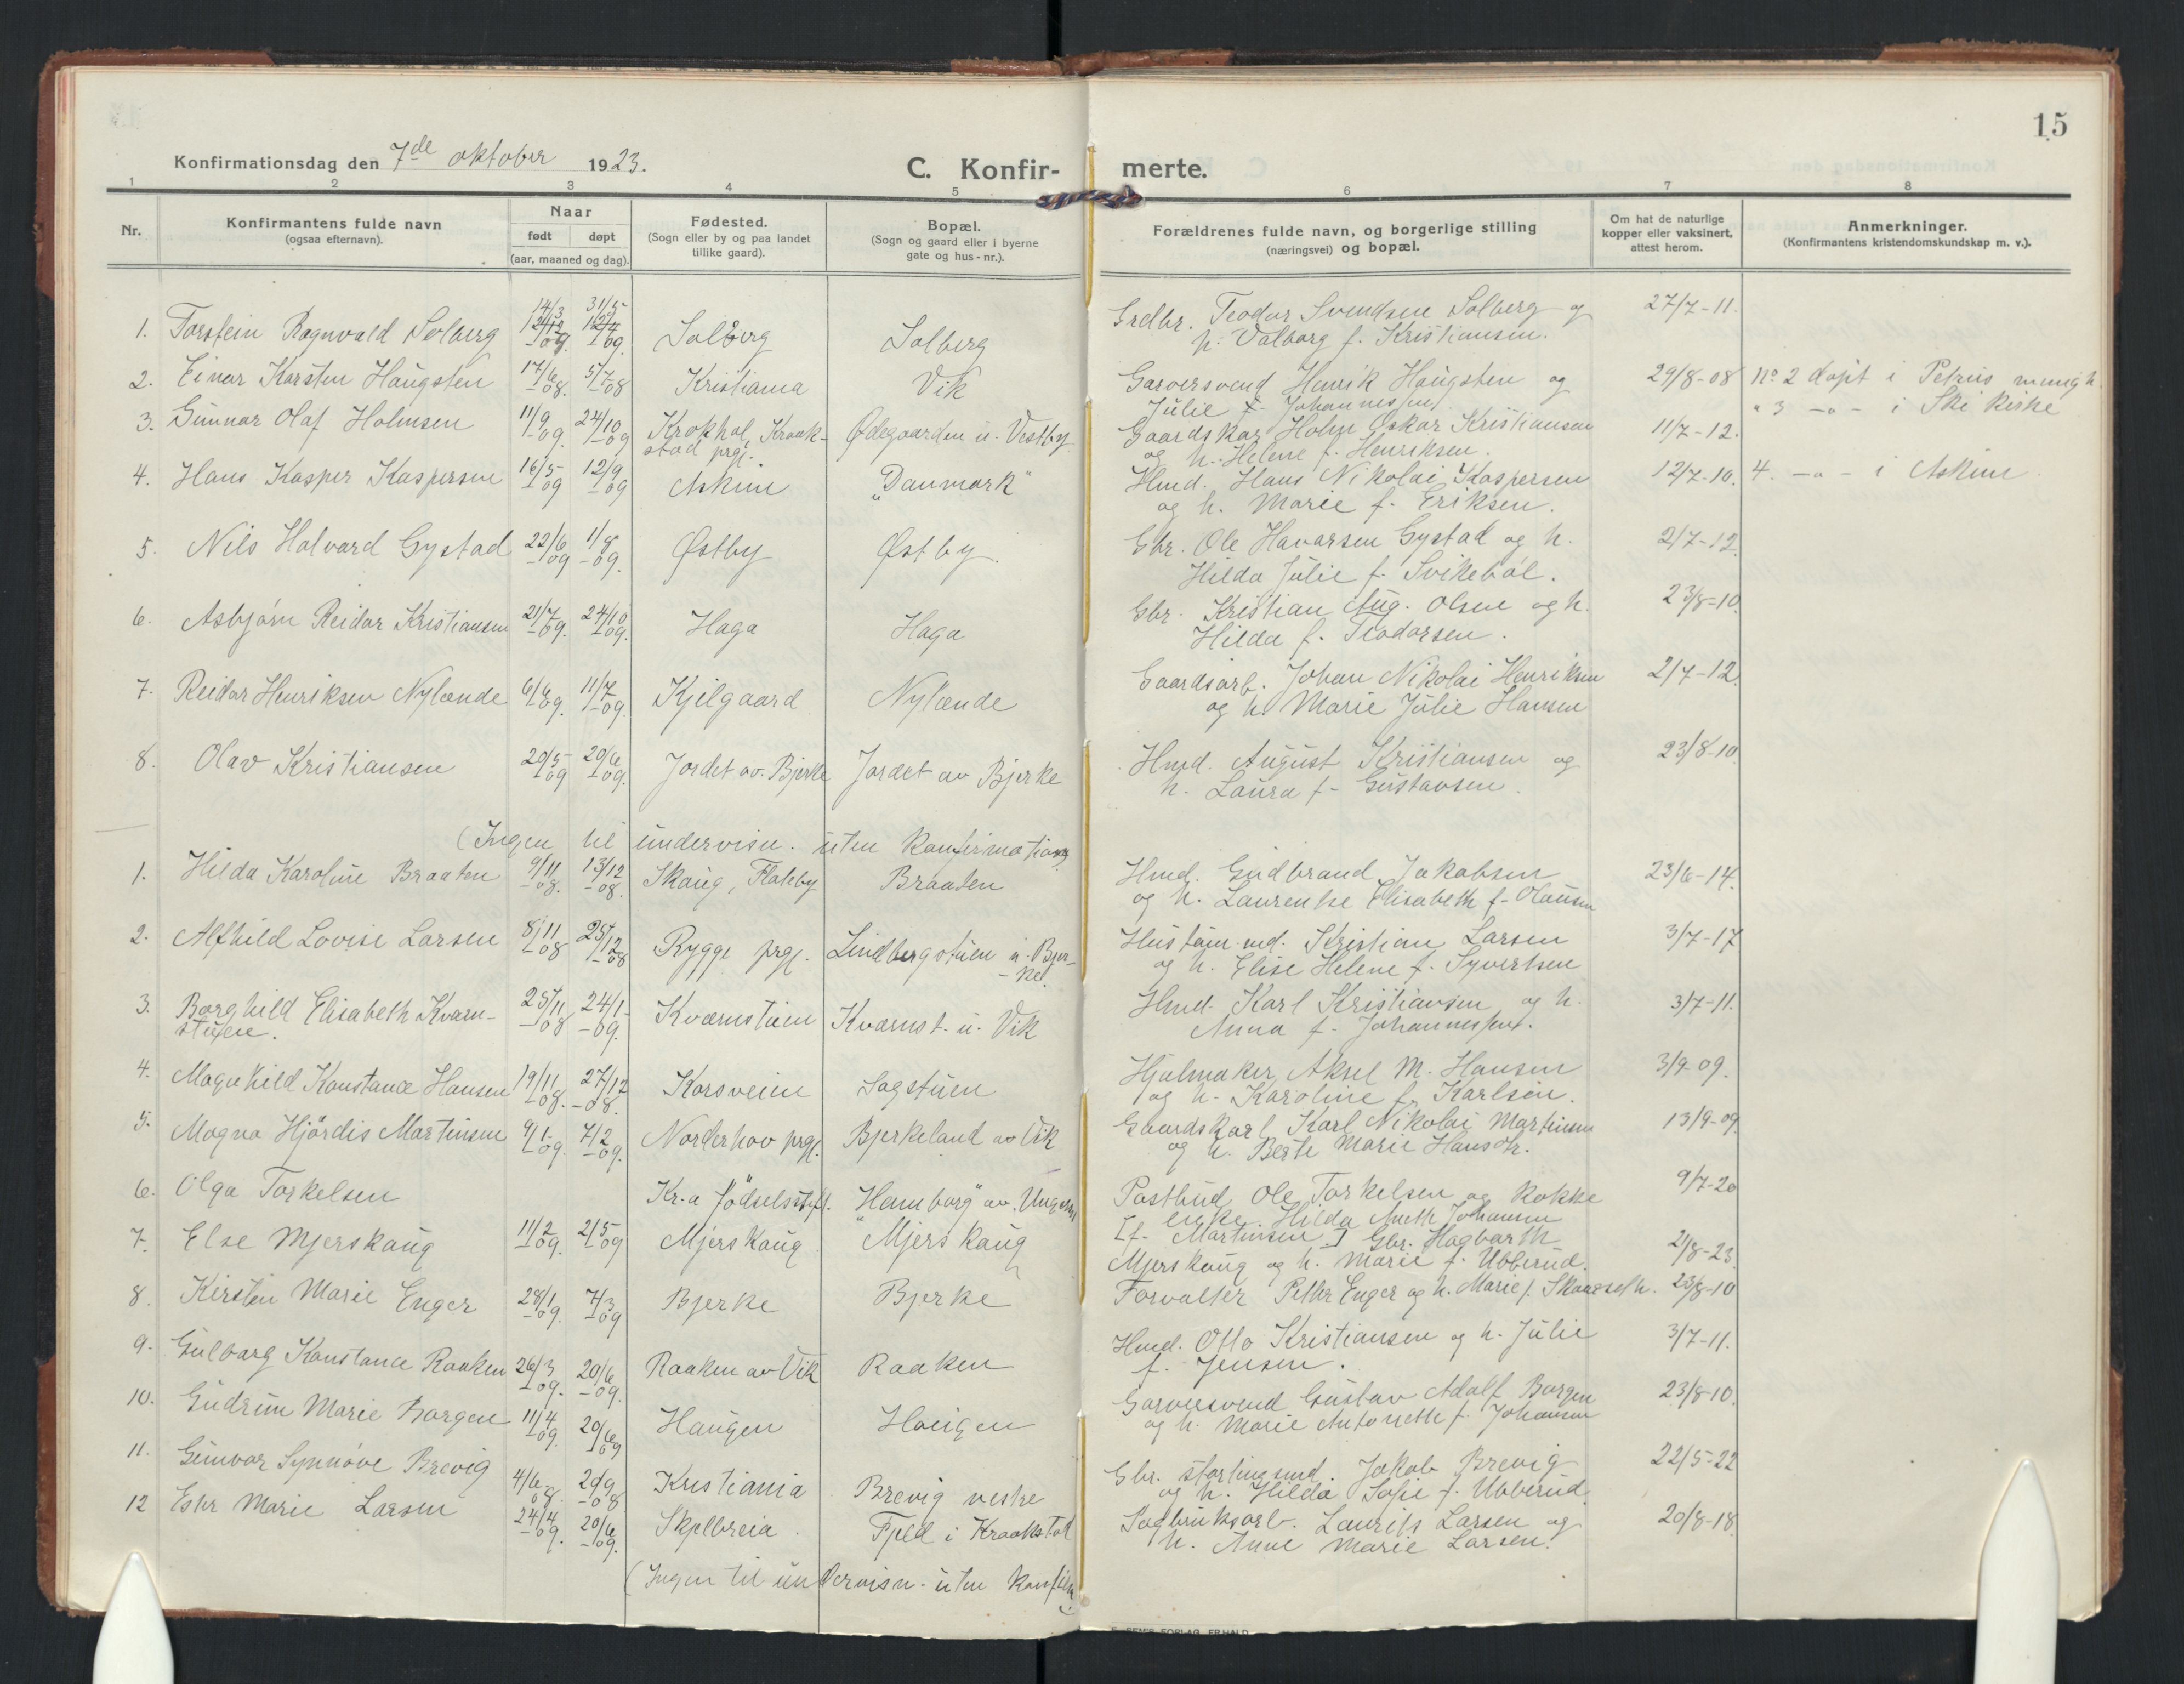 15
Konfirmationsdag den 7de oktober 1923.
C. Konfir-
merte.
1 2 3 4 5 6 7 8
Nr.
Konfirmantens fulde navn
(ogsaa efternavn).
Naar
født døpt
(aar, maaned og dag).
Fødested.
(Sogn eller by og paa landet
tillike gaard).
Bopæl.
(Sogn og gaard eller i byerne
gate og hus-nr.).
Forældrenes fulde navn, og borgerlige stilling
(næringsvei) og bopæl.
Om hat de naturlige
kopper eller vaksinert,
attest herom.
Anmerkninger.
(Konfirmantens kristendomskundskap m. v.).
1. Torstein Ragnvald Solberg 14/3 09. 31/5 09. Solberg Solberg Grdbr. Teodor Svendsen Solberg og 27/7-11.
h. Valborg f. Kristiansen.
2. Einar Karsten Haugsten 17/6 08. 5/7 08 Kristiania Vik Garversvend Henrik Haugsten og 29/8-08 No 2 døpt i Petrus menigh.
Julie f. Johannessen
3. Gunnar Olaf Holmsen 11/9 09. 24/10 09 Krokhol, Kraak- Ødegaarden u. Vestby Gaardskar Holm Oskar Kristiansen 11/7-12. " 3 -"- i Ski kirke
stad prgj. og h. Helene f. Henriksen.
4. Hans Kasper Kaspersen 16/5 09 12/9 09 Askim "Danmark" Hmd. Hans Nikolai Kaspersen 12/7-10. 4. -"- i Askim.
og h. Marie f. Eriksen.
5. Nils Halvard Gystad 22/6 09 1/8 09. Østby Østby. Gbr. Ole Havarsen Gystad og h. 2/7-12.
Hilda Julie f. Svikebøl.
6. Asbjørn Reidar Kristiansen 21/7 09. 24/10 09. Haga Haga Gbr. Kristian Aug. Olsen og h. 23/8-10.
Hilda f. Teodorsen.
7. Reidar Henriksen Nylænde 6/6 09. 11/7 09. Kjelgaard Nylænde Gaardsarb. Johan Nikolai Henriksen 2/7-12.
og h. Marie Julie Hansen
8. Olav Kristiansen 20/5 09 20/6 09. Jordet av Bjerke Jordet av Bjerke Hmd. August Kristiansen og 23/8-10
h. Laura f. Gustavsen.
(Ingen til undervisn. uten konfirmation)
1. Hilda Karoline Braaten 9/11 08. 13/12 08. Skaug, Flateby Braaten Hmd. Gudbrand Jakobsen 23/6-14.
og h. Laurentse Elisabeth f. Olausen
2. Alfhild Lovise Larsen 8/11 08 25/12 08 Rygge prgj. Lindbergstuen u. Bjer- Hustøm.md. Kristian Larsen 3/7-17
ke. og h. Elise Helene f. Syvertsen
3. Borghild Elisabeth Kvern- 25/11 08 24/1 09. Kværnstuen Kværnst. u. Vik Hmd. Karl Kristiansen og h. 3/7-11.
stuen. Anna f. Johannessen.
4. Magnhild Konstance Hansen 19/11 08. 27/12 08. Korsveien Sagstuen Hjulmaker Aksel M. Hansen 3/9-09.
og h. Karoline f. Karlsen.
5. Magna Hjördis Martinsen 9/1 09. 7/2 09. Norderhov prgj. Bjerkeland av Vik Gaardskarl Karl Nikolai Martinsen 13/9-09
og h. Berte Marie Hansdtr.
6. Olga Torkelsen Kr.a Fødselsstift. "Hamborg" av Postbud Ole Torkelsen og kokke 9/7-20
enke Hilda Aneth Johansen
[f. Martinsen]
7. Else Mjerskaug 11/2 09. 2/5 09 Mjerskaug Mjerskaug Gbr. Hagbarth 21/8-23.
Mjerskaug og h. Marie f. Ubberud.
8. Kirsten Marie Enger 28/1 09. 7/3 09 Bjerke Bjerke Forvalter Petter Enger og h. Marie f. Skaugseth. 23/8-10
9. Gulborg Konstance Raaken 26/3 09. 20/6 09. Raaken av Vik Raaken Hmd. Otto Kristiansen og h. Julie 3/7-11.
f. Jensen.
10. Gudrun Marie Borgen 11/4 09. 20/6 09 Haugen Haugen Garversvend Gustav Adolf Borgen 23/8-10.
og h. Marie Antonette f. Johansen
11. Gunvor Synnøve Brevig 4/6 08. 20/9 08 Kristiania Brevig vestre Gbr. stortingsmd. Jakob Brevig 22/5-22
og h. Hilda Sofie f. Ubberud.
12 Ester Marie Larsen 24/4 09. 20/6 09. Skjelbreia. Fjeld i Kraakstad Sagbruksarb. Laurits Larsen og 20/8-18.
h. Anne Marie Larsen.
(Ingen til undervisn. uten konfirm.)